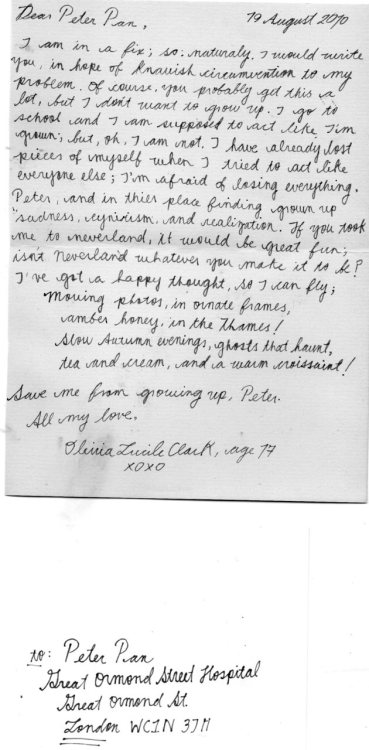 Dear Peter Pan, 19 August 2010
I am in a fix; so, naturally, I would write
you, in hope of knavish circumvention to my
problem. Of course, you probably get this a
lot, but I don't want to grow up. I go to
school and I am supposed to act like I'm
grown; but, oh, I am not. I have already lost
pieces of myself when I tried to act like
everyone else; I'm afraid of losing everything,
Peter, and in thier place finding grown up
sadness, cynicism, and realization. If you took
me to neverland, it would be great fun;
isn't Neverland whatever you make it to be?
I've got a happy thought, so I can fly;
Moving photos, in ornate frames,
amber honey, in the Thames!
Slow Autumn evenings, ghosts that haunt,
tea and cream, and a warm croissaint!
Save me from growing up, Peter.
All my love,
Olivia Lucile Clark, age 17
xoxo
to: Peter Pan
Great Ormond Street Hospital
Great Ormond St.
London WC1N 3JH